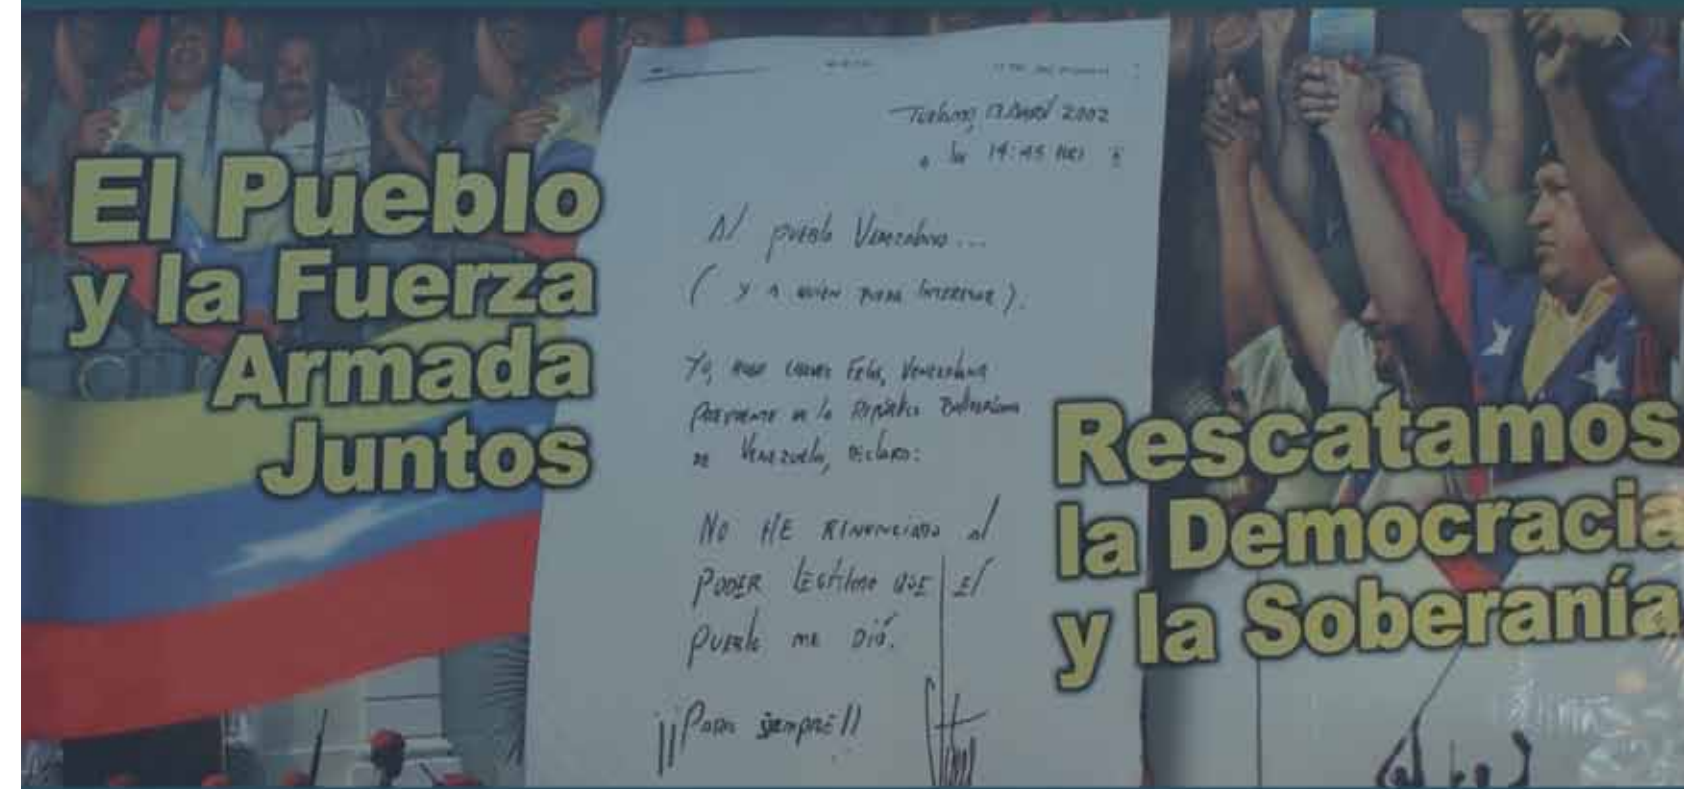 El Pueblo
y la Fuerza
Armada
Juntos
Turiamo, 13 Abril 2002
a las 14:45 hrs
Al pueblo Venezolano...
( y a quien pueda interesar ).
Yo, Hugo Chávez Frías, Venezolano
Presidente de la República Bolivariana
de Venezuela, declaro:
NO HE RENUNCIADO al
PODER LEGÍTIMO QUE El
Pueblo me DIÓ.
¡¡Para siempre!!
Rescatamos
la Democracia
y la Soberanía